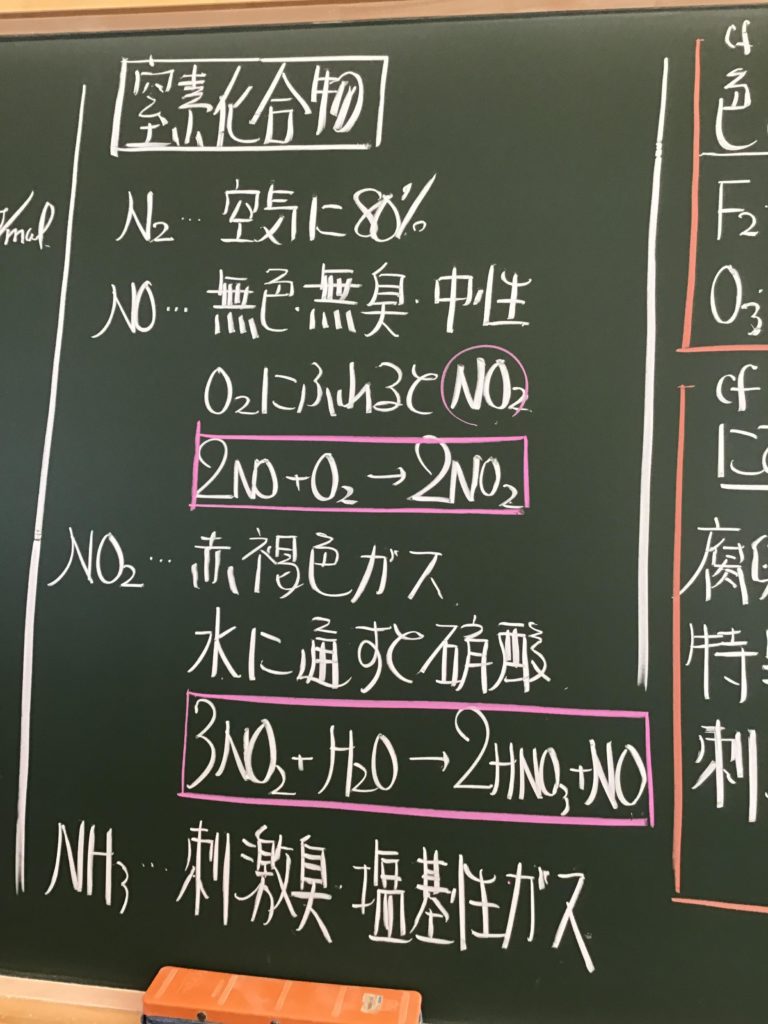 窒素化合物
N₂… 空気に80%
NO… 無色・無臭・中性
O₂にふれるとNO₂
2NO+O₂→2NO₂
NO₂… 赤褐色ガス
水に通すと硝酸
3NO₂+H₂O→2HNO₃+NO
NH₃… 刺激臭・塩基性ガス
/mol
cf
色
F₂
O₃
cf
にお
腐
特
刺